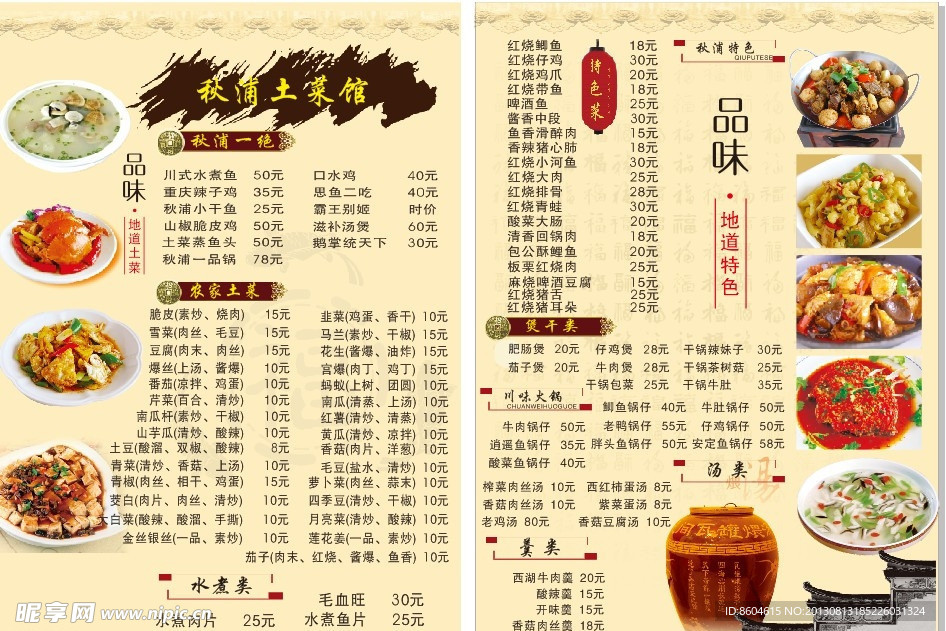 秋浦土菜馆
品味
•地道土菜
秋浦一绝
川式水煮鱼 50元 口水鸡 40元
重庆辣子鸡 35元 思鱼二吃 40元
秋浦小干鱼 25元 霸王别姬 时价
山椒脆皮鸡 50元 滋补汤煲 60元
土菜蒸鱼头 50元 鹅掌统天下 30元
秋浦一品锅 78元
农家土菜
脆皮(素炒、烧肉) 15元 韭菜(鸡蛋、香干) 10元
雪菜(肉丝、毛豆) 15元 马兰(素炒、干椒) 15元
豆腐(肉末、肉丝) 10元 花生(酱爆、油炸) 15元
爆丝(上汤、酱爆) 10元 宫爆(肉丁、鸡丁) 15元
番茄(凉拌、鸡蛋) 10元 蚂蚁(上树、团圆) 10元
芹菜(百合、清炒) 10元 南瓜(清蒸、上汤) 10元
南瓜杆(素炒、干椒) 10元 红薯(清炒、清蒸) 10元
山芋瓜(清炒、酸辣) 10元 黄瓜(清炒、凉拌) 10元
土豆(酸溜、双椒、酸辣) 8元 香菇(肉片、洋葱) 10元
青菜(清炒、香菇、上汤) 10元 毛豆(盐水、清炒) 10元
青椒(肉丝、相干、鸡蛋) 15元 萝卜菜(肉丝、蒜末) 10元
茭白(肉片、肉丝、清炒) 10元 四季豆(清炒、干椒) 10元
大白菜(酸辣、酸溜、手撕) 10元 月亮菜(清炒、酸辣) 10元
金丝银丝(一品、素炒) 10元 莲花姜(一品、素炒) 10元
茄子(肉末、红烧、酱爆、鱼香) 10元
水煮类
毛血旺 30元
水煮肉片 25元 水煮鱼片 25元
昵享网 www.nipic.cn
红烧鲫鱼 18元
红烧仔鸡 30元
红烧鸡爪 20元
红烧带鱼 18元
啤酒鱼 25元
酱香中段 30元
鱼香滑醉肉 15元
香辣猪心肺 18元
红烧小河鱼 30元
红烧大肉 25元
红烧排骨 28元
红烧青蛙 30元
酸菜大肠 20元
清香回锅肉 18元
包公酥鲤鱼 20元
板栗红烧肉 25元
麻烧啤酒豆腐 15元
红烧猪舌 25元
红烧猪耳朵 25元
特色菜
秋浦特色
QIUPUTESE
品味
•地道特色
煲干类
肥肠煲 20元 仔鸡煲 28元 干锅辣妹子 30元
茄子煲 20元 牛肉煲 28元 干锅茶树菇 25元
干锅包菜 25元 干锅牛肚 35元
川味火锅
CHUANWEIHUOGUOE
鲫鱼锅仔 40元 牛肚锅仔 50元
牛肉锅仔 50元 老鸭锅仔 55元 仔鸡锅仔 50元
逍遥鱼锅仔 35元 胖头鱼锅仔 50元 安定鱼锅仔 58元
酸菜鱼锅仔 40元
汤类
榨菜肉丝汤 10元 西红柿蛋汤 8元
香菇肉丝汤 10元 紫菜蛋汤 8元
老鸡汤 80元 香菇豆腐汤 10元
羹类
西湖牛肉羹 20元
酸辣羹 15元
开味羹 15元
香菇肉丝羹 18元
ID:8604615 NO:20130813185226031324